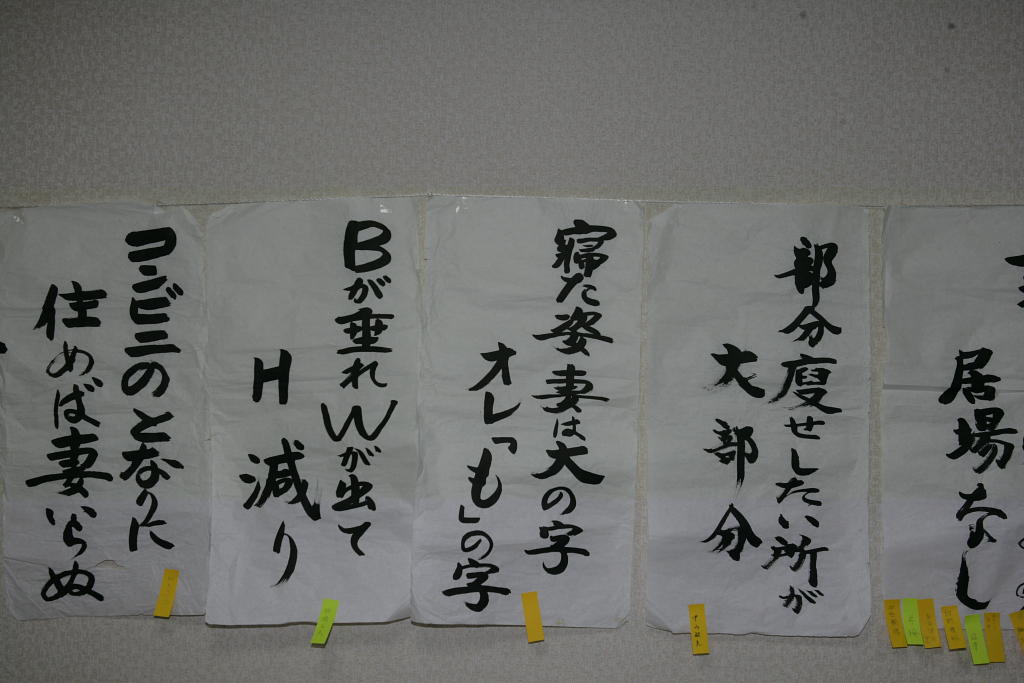 居場なし
部分痩せしたい所が
大部分
寝た姿妻は大の字
オレ「も」の字
Bが垂れWが出て
H減り
コンビニのとなりに
住めば妻いらぬ